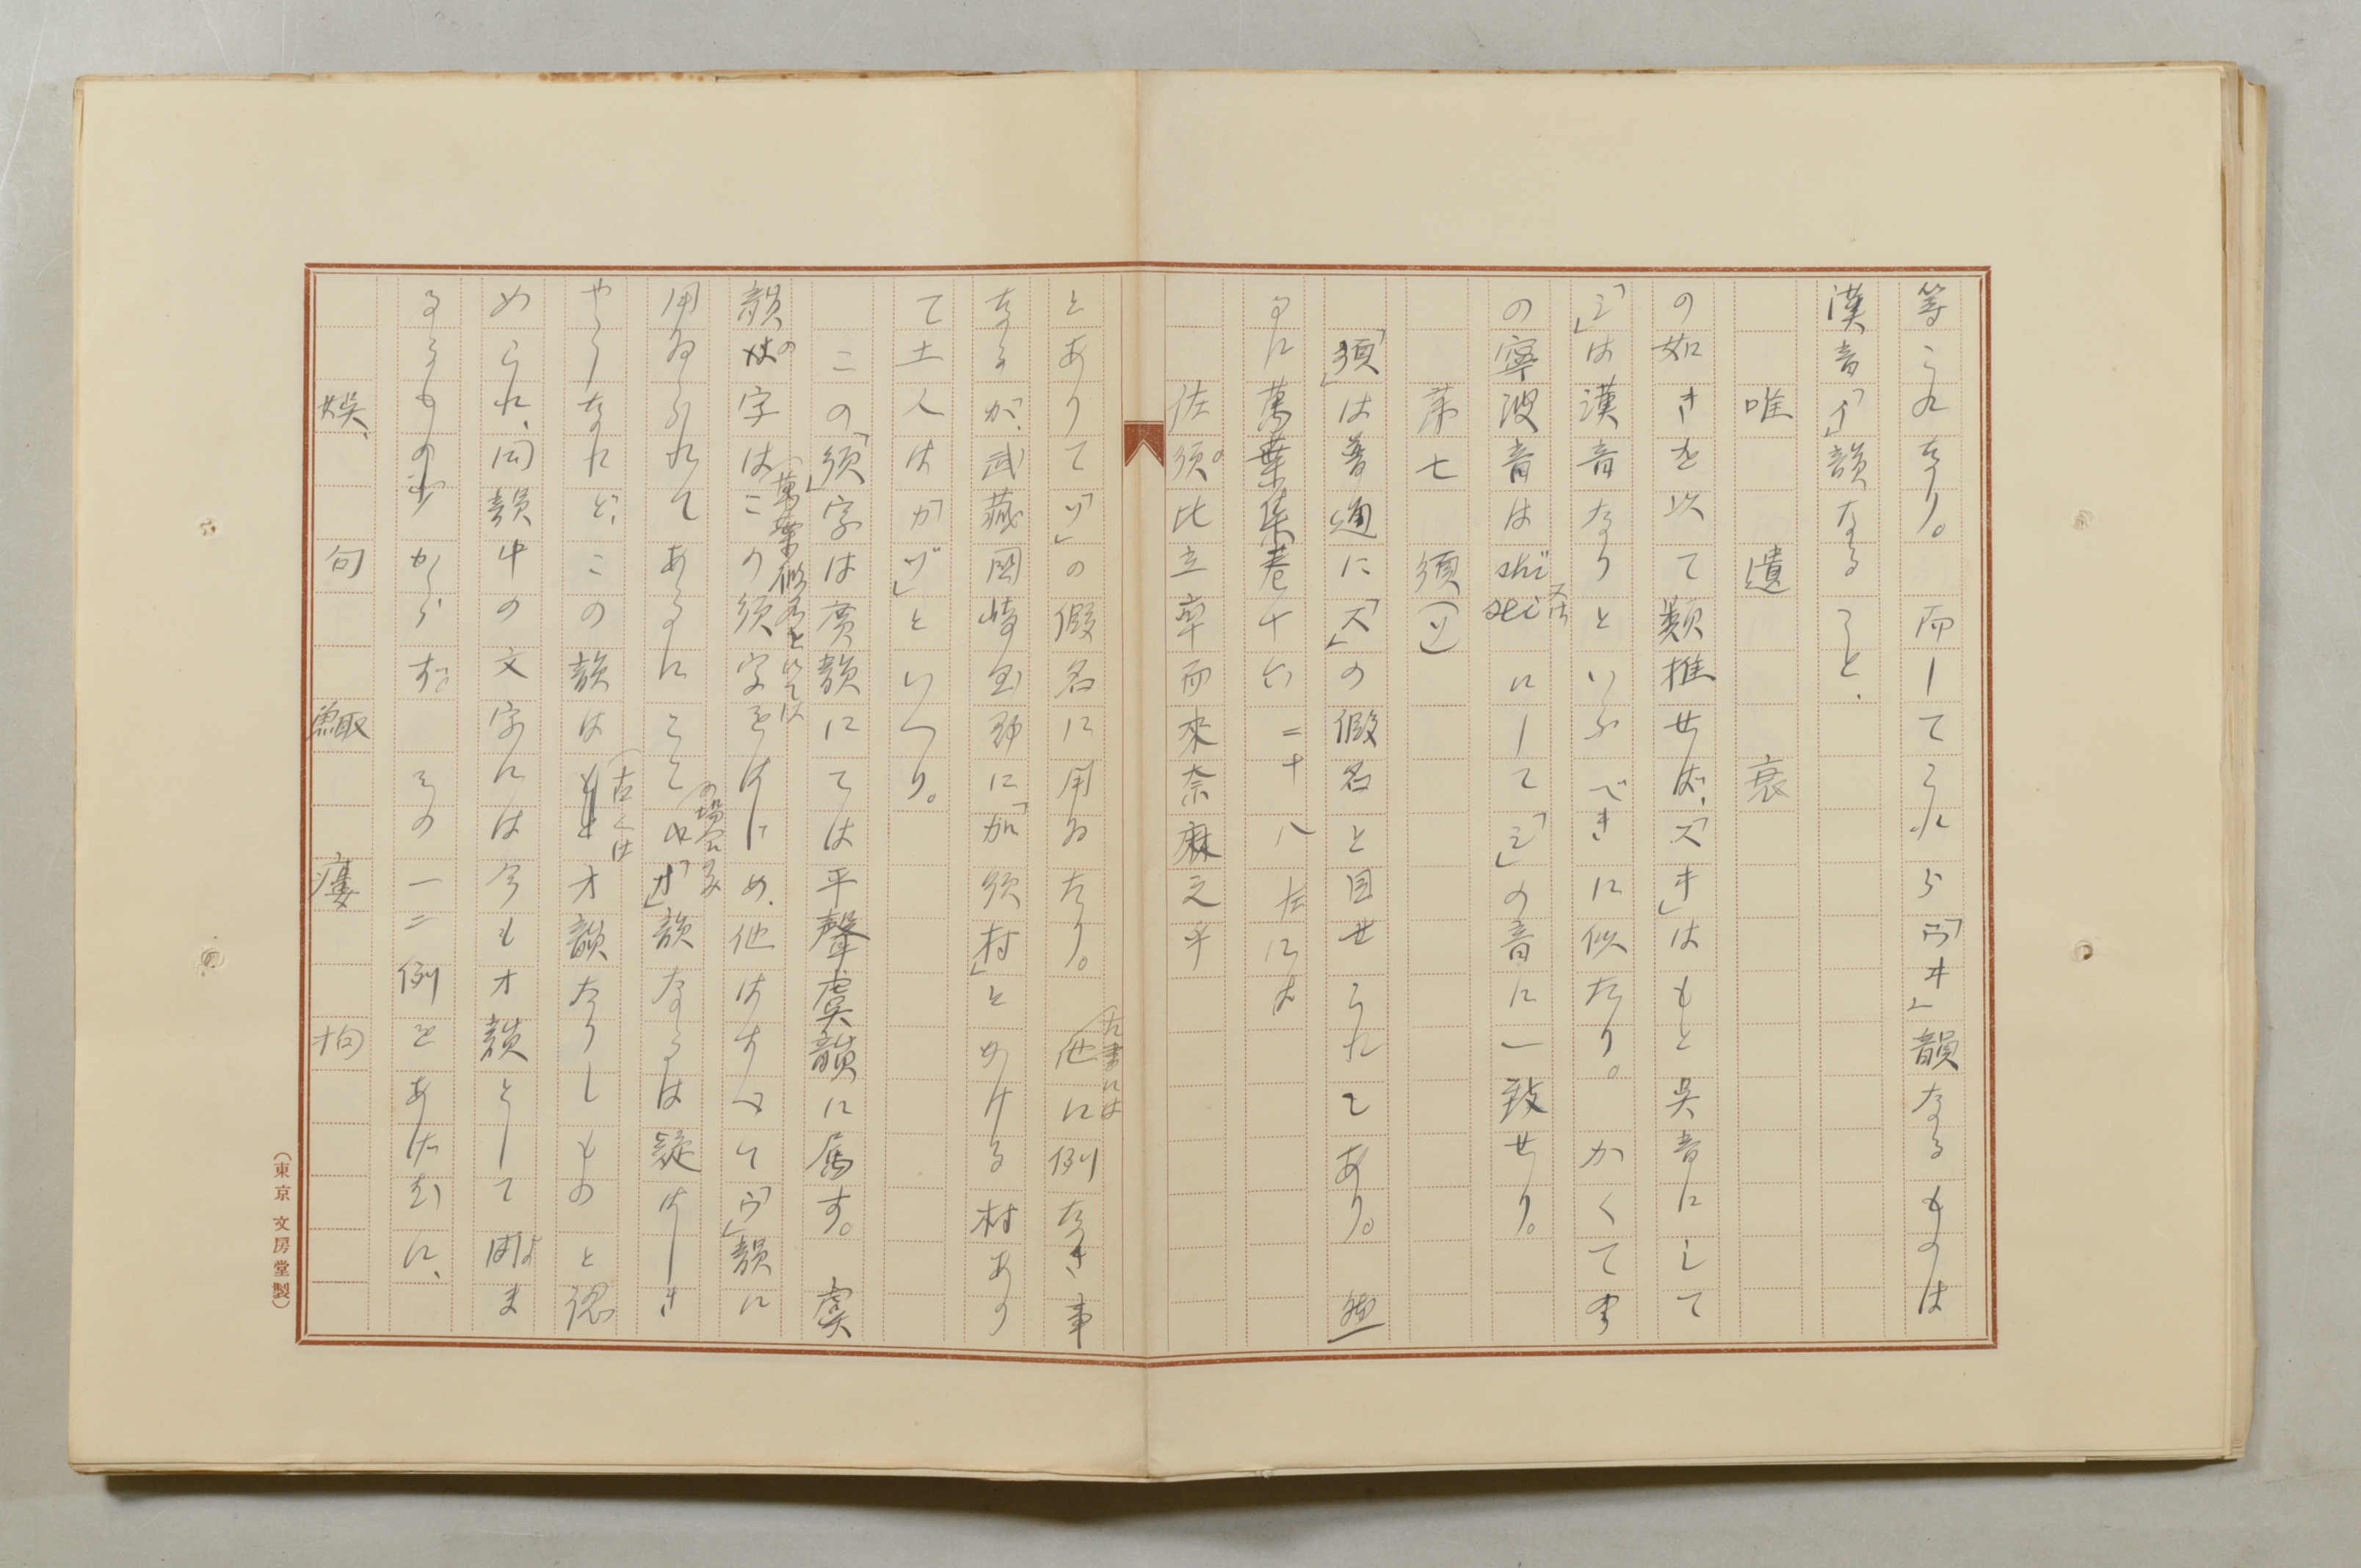 等これなり。而してこれら「ウヰ」韻なるものは
漢音「イ」韻なること、
唯　遺　衰
の如きを以て類推せば、「スヰ」はもと呉音にして
「シ」は漢音なりといふべきに似たり。かくて
の寧波音は shi 又は sei にして「シ」の音に一致せり。
第七　須(ソ)
「須」は普通に「ス」の假名と目せられてあり。然
るに萬葉集巻十六 二十八左には
佐須比立率而来奈麻之乎
とありて「ソ」の假名に用ゐたり。古書には他に例なき事
なるが、武藏國埼玉郡に「加須村」とかける村あり
て土人は「カゾ」といへり。
この「須」字は廣韻にては平聲虞韻に属す。虞
韻の字は(萬葉假名としては)この須字をはじめ、他はすべて「ウ」韻に
用ゐられてあるにこの場合のみ「オ」韻なるは疑はしき
やうなれど、この韻は古くはオ韻なりしものと認
められ、同韻中の文字には今もオ韻として用ゐ
るるもの少からず。その一二例をあげむに、
娯、句　鯫　瘻　拘
(東京文房堂製)